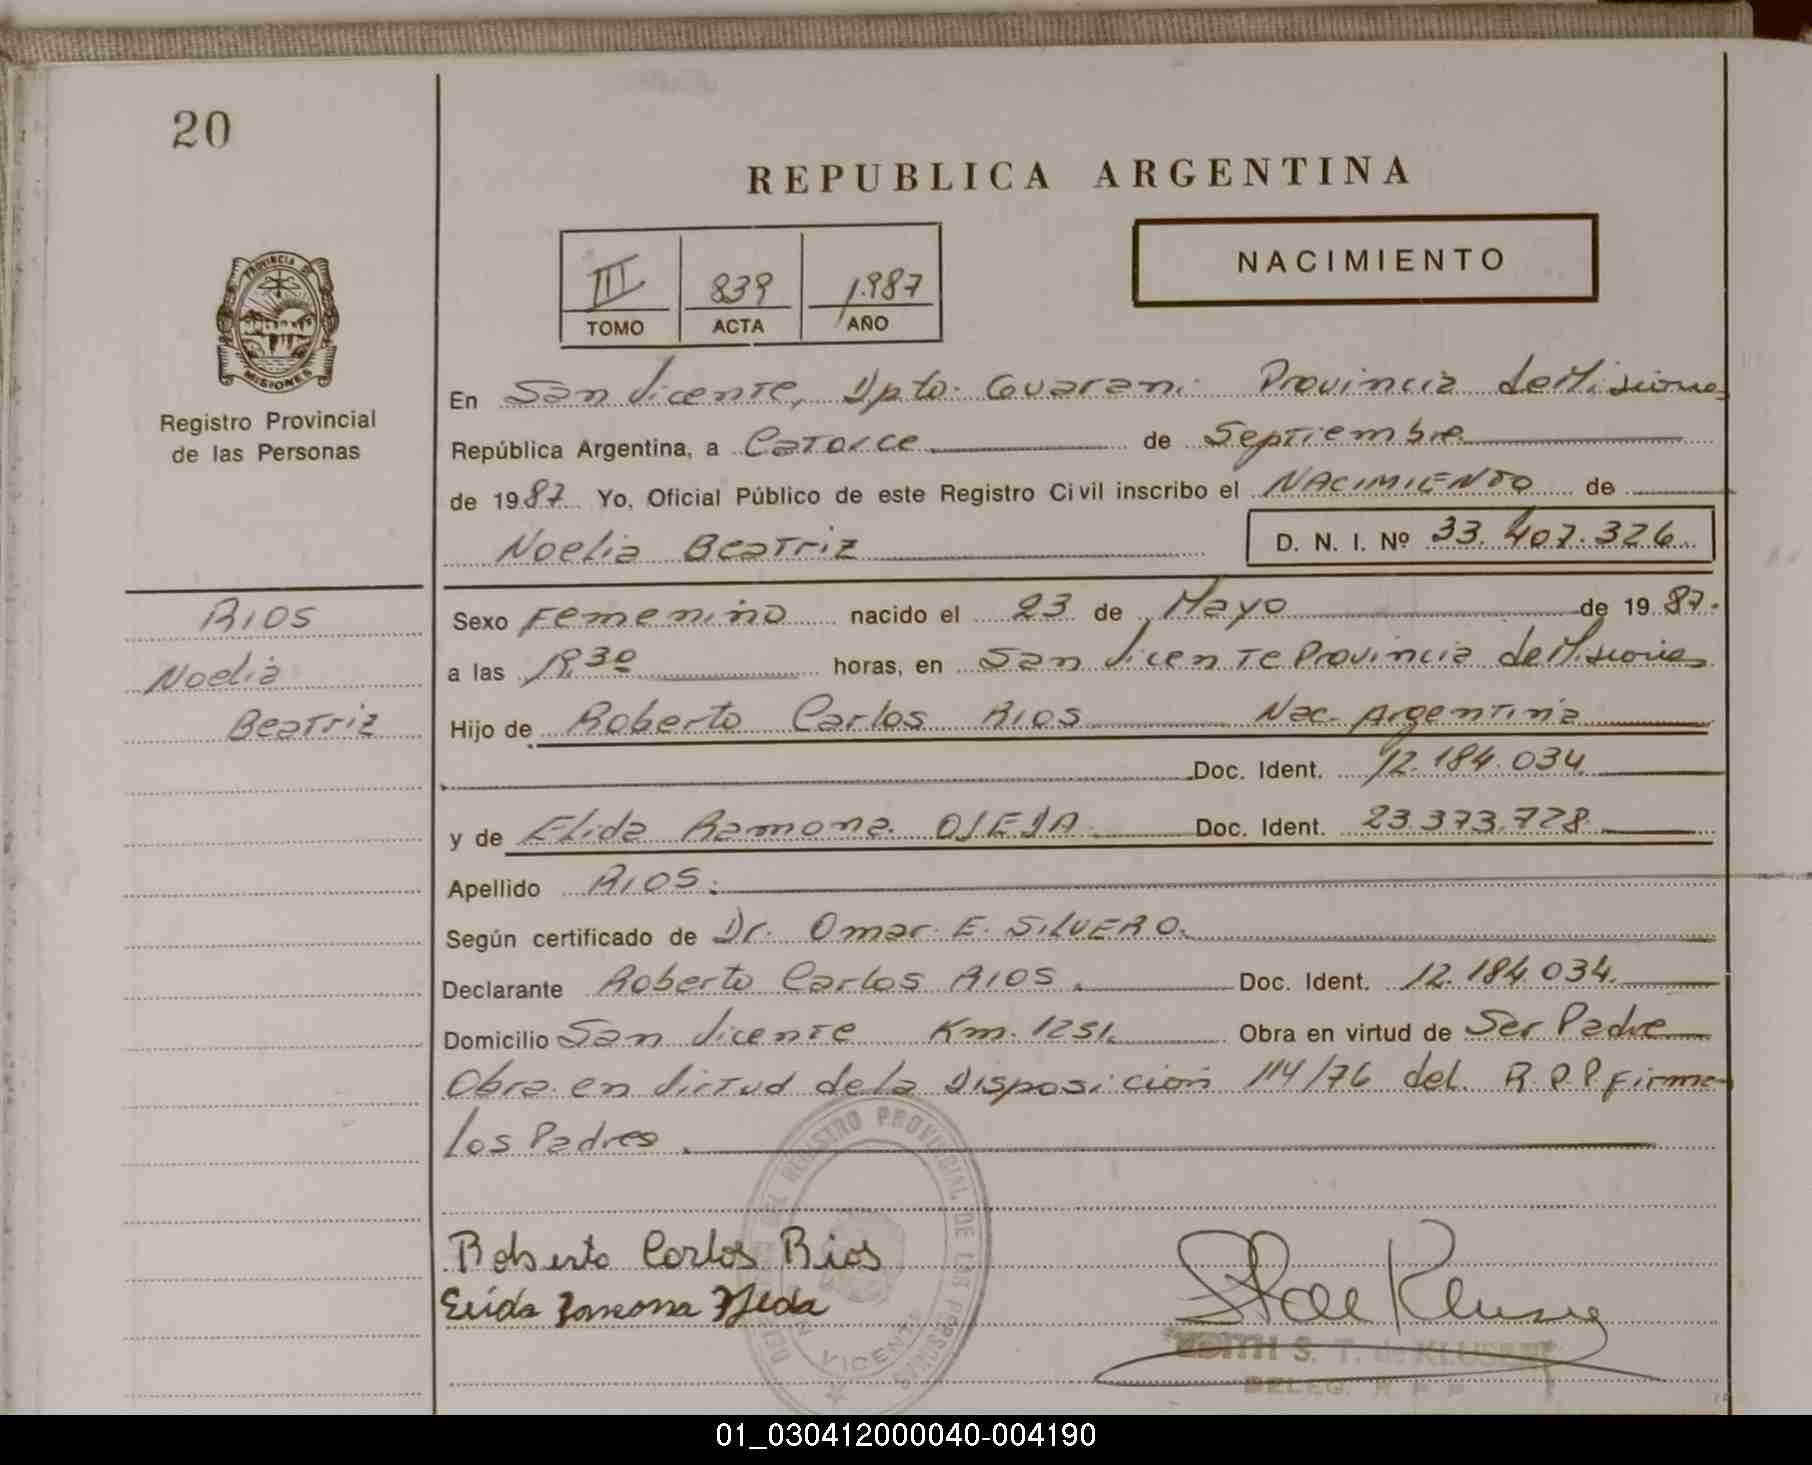 20
REPUBLICA ARGENTINA
PROVINCIA DE
MISIONES
Registro Provincial
de las Personas
III 839 1.987
TOMO ACTA AÑO
NACIMIENTO
En San Vicente, Dpto. Guarani Provincia de Misiones
República Argentina, a Catorce de Septiembre
de 1987 Yo, Oficial Público de este Registro Civil inscribo el NACIMIENTO de
Noelia Beatriz D. N. I. Nº 33.407.326
RIOS
Noelia
Beatriz
Sexo Femenino nacido el 23 de Mayo de 1987.
a las horas, en San Vicente Provincia de Misiones
Hijo de Roberto Carlos RIOS Nac. Argentina
Doc. Ident. 12.184.034
y de Elida Ramona OJEDA Doc. Ident. 23.373.728
Apellido RIOS.
Según certificado de Dr. Omar E. SILVERO.
Declarante Roberto Carlos RIOS. Doc. Ident. 12.184.034.
Domicilio San Vicente Km. 1251. Obra en virtud de Ser Padre
Obra en Virtud de la Disposición 114/76 del R.P.P firma
los Padres.
DEL REGISTRO PROVINCIAL DE LAS PERSONAS
VICENTE
Roberto Carlos Rios
Elida Ramona Ojeda
EDITH S. T. de
DELEG. R P P
01_030412000040-004190